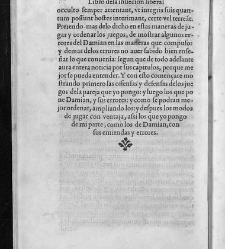 Libro de la inuencion liberal
occulto semper attentant, vt integris suis quan-
tum possunt hostes interimant, certe vel terreãt.
Pretendo mas delo dicho en estas maneras de ju-
gar y ordenar los juegos, de mostrar algunos er-
rores del Damian en las maneras que compuso: y
y demas delos errores no auer sabido bien ense-
ñar lo que conuenia: segun que de todo adelante
aura entera noticia por sus capitulos, porque me
jor se pueda entender. Y con esto començare mo
strando primero las offensas y defensas delos jue
gos dela pareja que yo pongo: y luego los que po
ne Damian, y sus errores: y como se podran me-
jor ordenar, ampliando los: y despues los modos
de jugar con ventaja, assi los que yo pongo
de mi parte, como los de Damian, con
sus emiendas y errores.